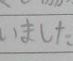 いました